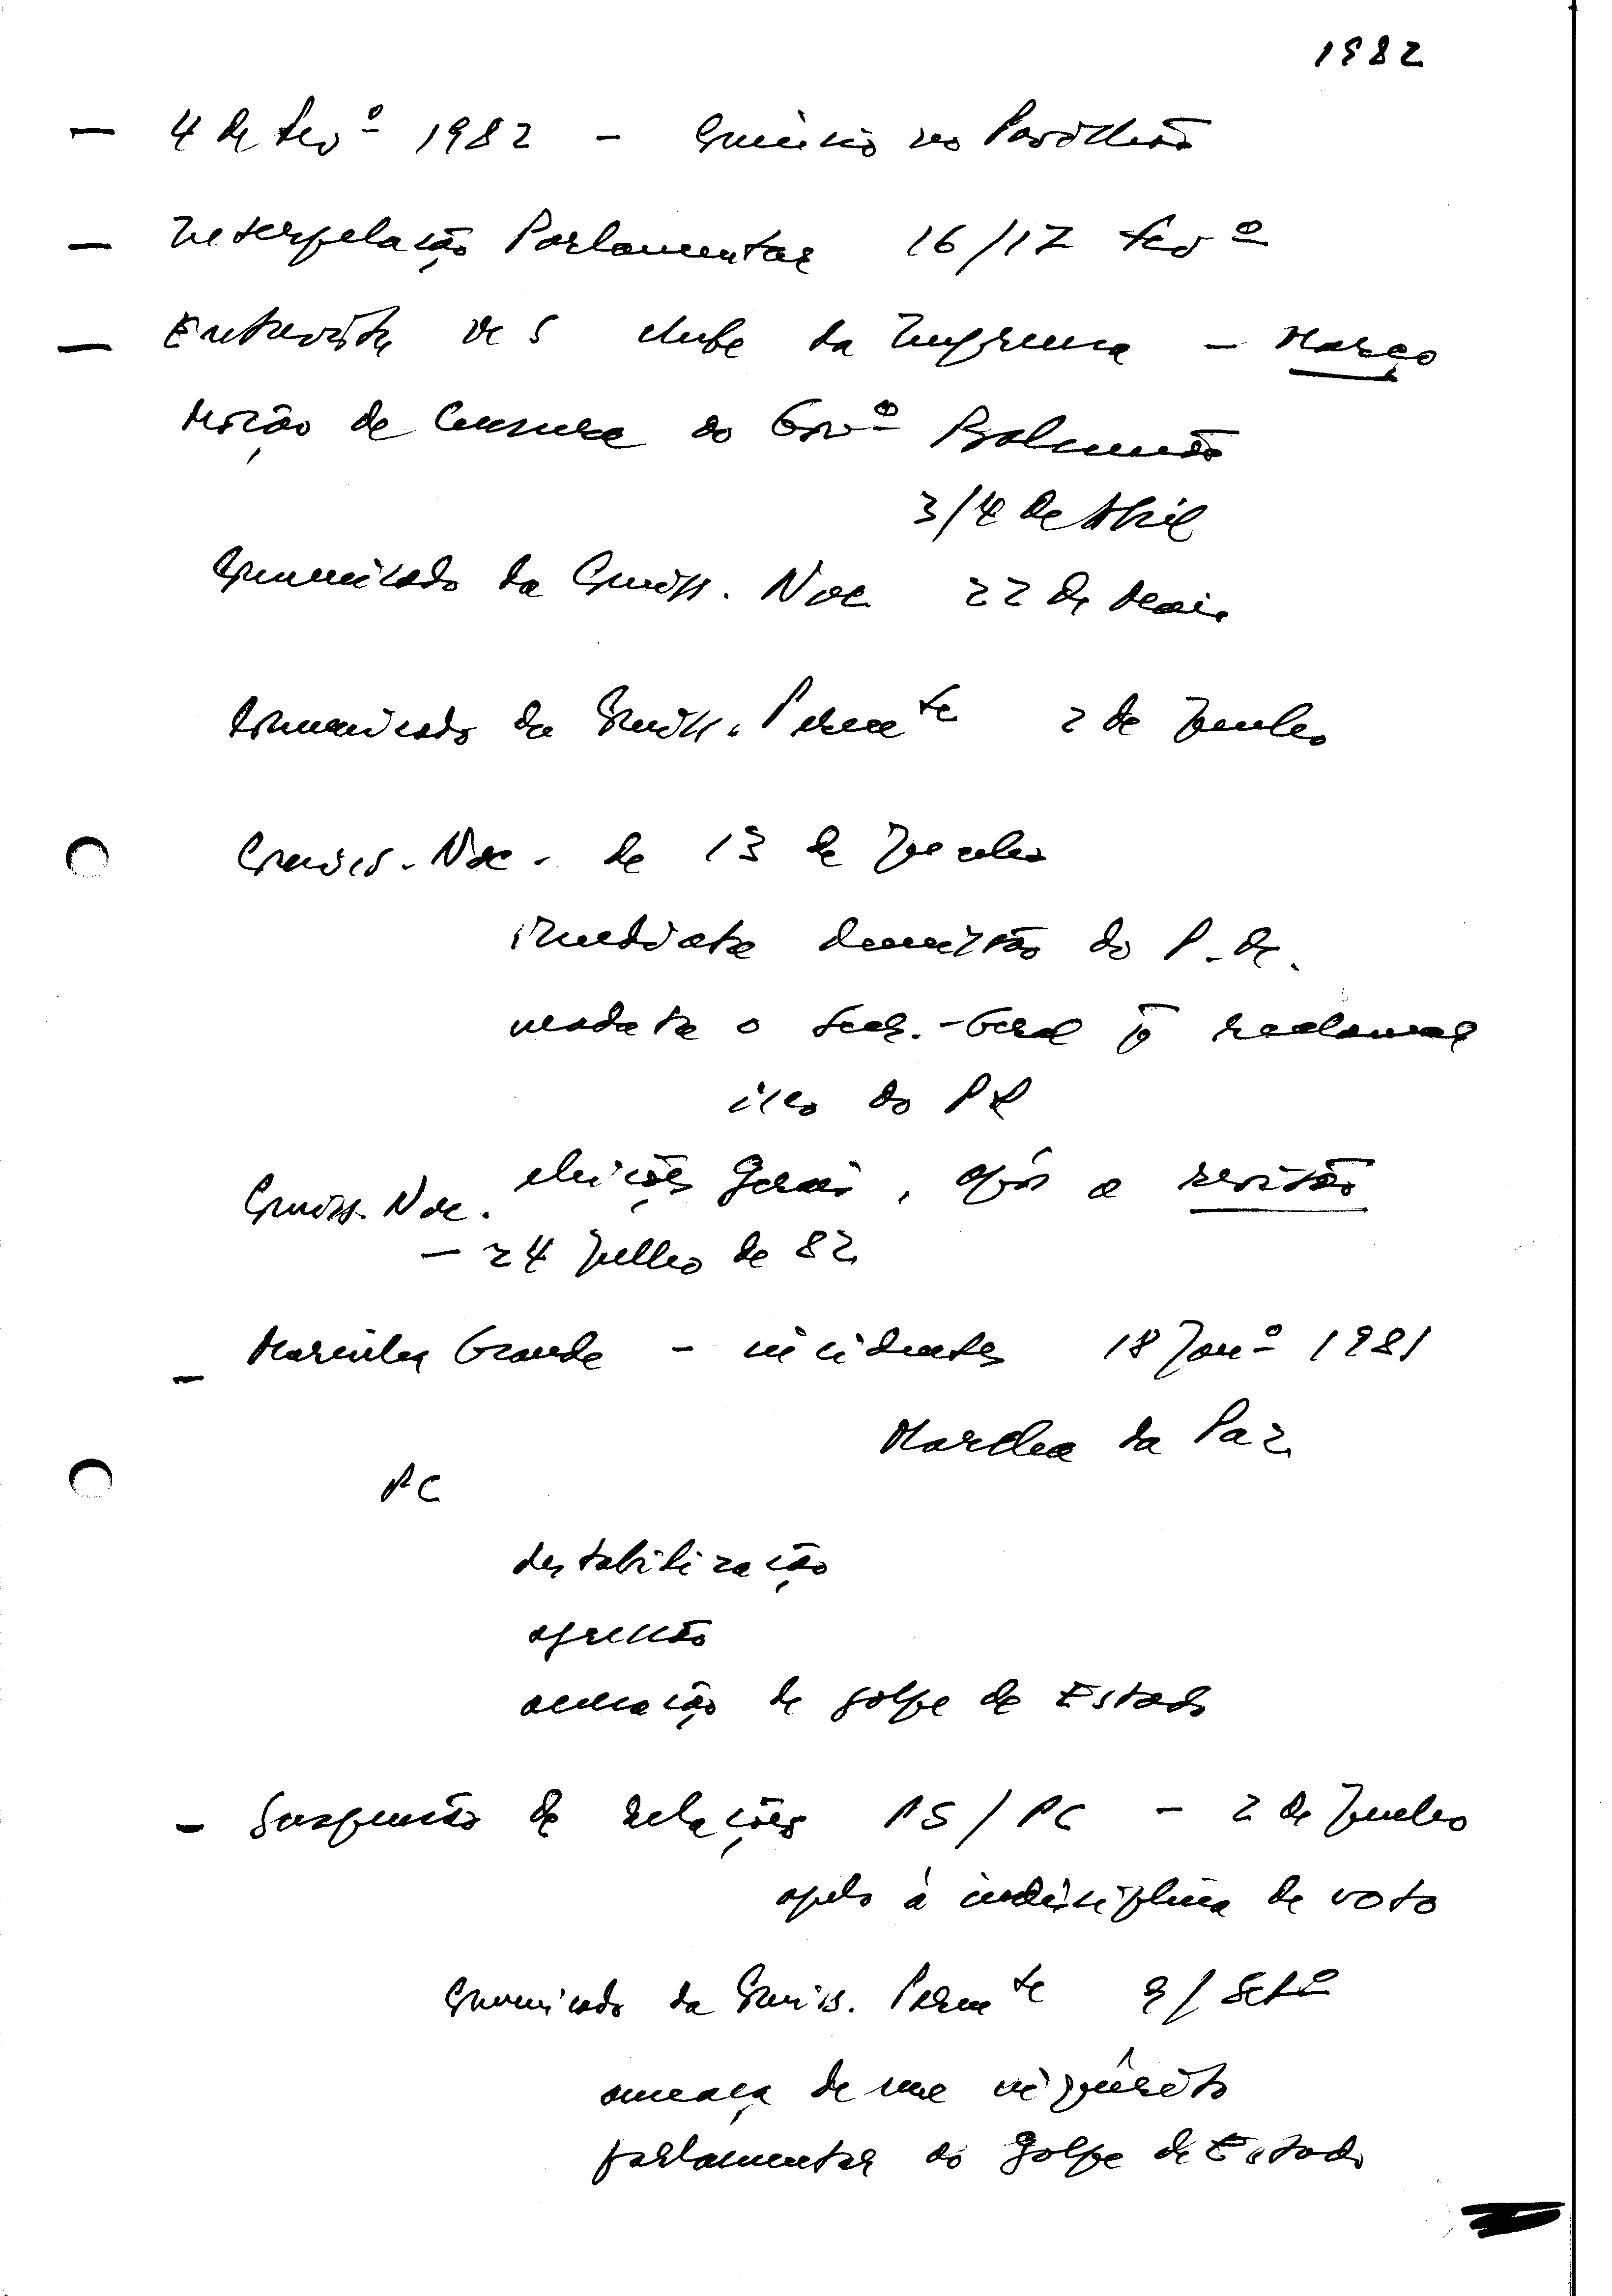 1982
— 4 de Fevº 1982 – Comício no Pavilhão
— Interpelação Parlamentar 16/17 Fevº
— Entrevista no Clube da Imprensa – Março
Moção de Censura ao Govº Balsemão
3/4 de Abril
Comunicado da Comiss. Nac. 22 de Maio
Comunicado da Comiss. Permte 2 de Junho
Comiss. Nac. de 13 de Junho
imediata demissão do P.M.
mandata o Secr.-Geral p reclamar
isso do PR
eleições gerais, após a revisão
Comiss. Nac.
– 24 Julho de 82
– Marinha Grande – incidentes 18 Janº 1981
Marcha da Paz
PC
destabilização
agressão
acusação de golpe de Estado
– Suspensão de relações PS/PC – 2 de Junho
apelo à indisciplina de voto
Comunicado da Comiss. Permte 9/Setº
ameaça de um inquérito
parlamentar ao golpe de Estado